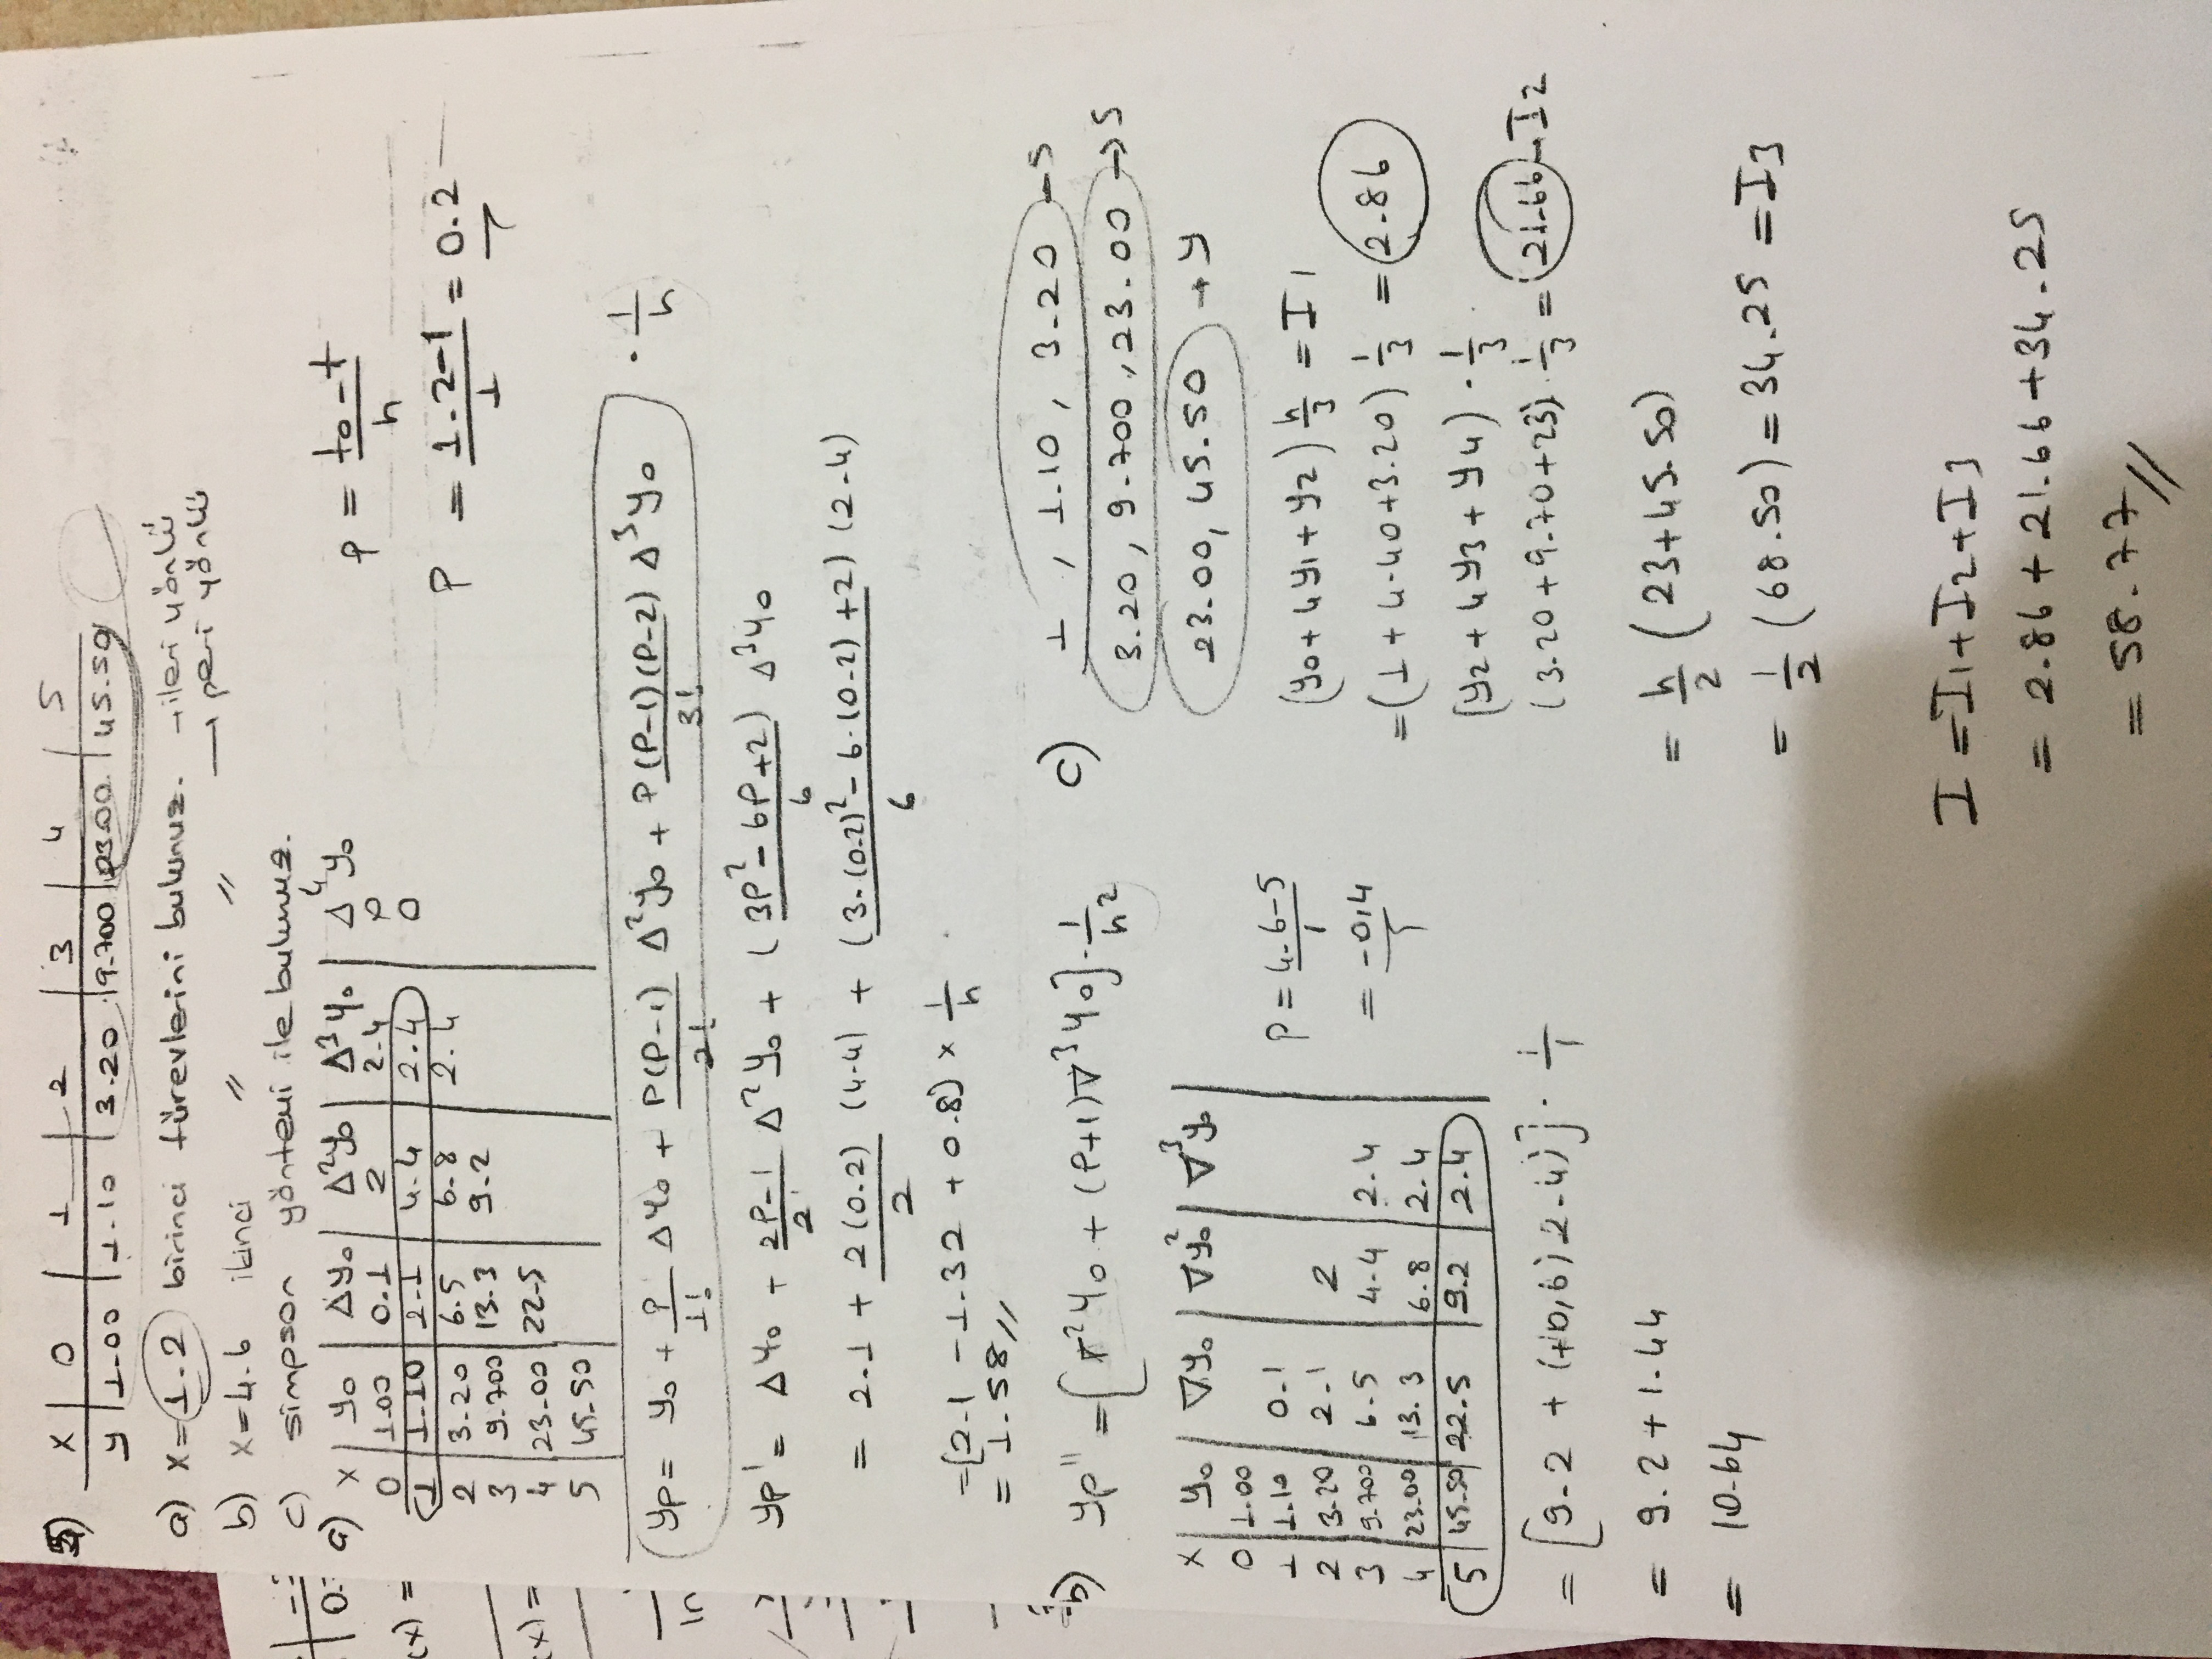 5) x | 0 | 1 | 2 | 3 | 4 | 5
y | 1.00 | 1.10 | 3.20 | 9.700 | 23.00 | 45.50
a) x=1.2 birinci türevlerini bulunuz. → ileri yönlü
→ peri yönlü
b) x=4.6 ikinci " "
c) simpson yöntemi ile bulunuz.
a) x | y₀ | Δy₀ | Δ²y₀ | Δ³y₀ | Δ⁴y₀
0 | 1.00 | 0.1 | 2 | 2.4 | 0
1 | 1.10 | 2.1 | 4.4 | 2.4 | 0
2 | 3.20 | 6.5 | 6.8 | 2.4
3 | 9.700 | 13.3 | 9.2
4 | 23.00 | 22.5
5 | 45.50
P = (t₀-t)/h
P = (1.2-1)/1 = 0.2
yp = y₀ + P/1! Δy₀ + P(P-1)/2! Δ²y₀ + P(P-1)(P-2)/3! Δ³y₀ · 1/h
yp' = Δy₀ + (2P-1)/2! Δ²y₀ + (3P²-6P+2)/6 Δ³y₀
= 2.1 + 2(0.2)/2 (4.4) + (3.(0.2)²-6.(0.2)+2)/6 (2.4)
= [2.1 - 1.32 + 0.8] × 1/h
= 1.58 //
b) yp'' = [∇²y₀ + (P+1)∇³y₀] · 1/h²
x | y₀ | ∇y₀ | ∇y₀² | ∇³y₀
0 | 1.00
1 | 1.10 | 0.1
2 | 3.20 | 2.1 | 2
3 | 9.700 | 6.5 | 4.4 | 2.4
4 | 23.00 | 13.3 | 6.8 | 2.4
5 | 45.50 | 22.5 | 9.2 | 2.4
P = (4.6-5)/1
= -0,4
= [9.2 + (+0,6)2.4)] · 1/1
= 9.2 + 1.44
= 10.64
c) 1, 1.10, 3.20 → S
3.20, 9.700, 23.00 → S
23.00, 45.50 → y
(y₀ + 4y₁ + y₂) h/3 = I₁
= (1 + 4.40 + 3.20) 1/3 = 2.86
(y₂ + 4y₃ + y₄) · 1/3
(3.20 + 9.70 + 23) · 1/3 = 21.66 → I₂
= h/2 (23 + 45.50)
= 1/2 (68.50) = 34.25 = I₃
I = I₁ + I₂ + I₃
= 2.86 + 21.66 + 34.25
= 58.77 //